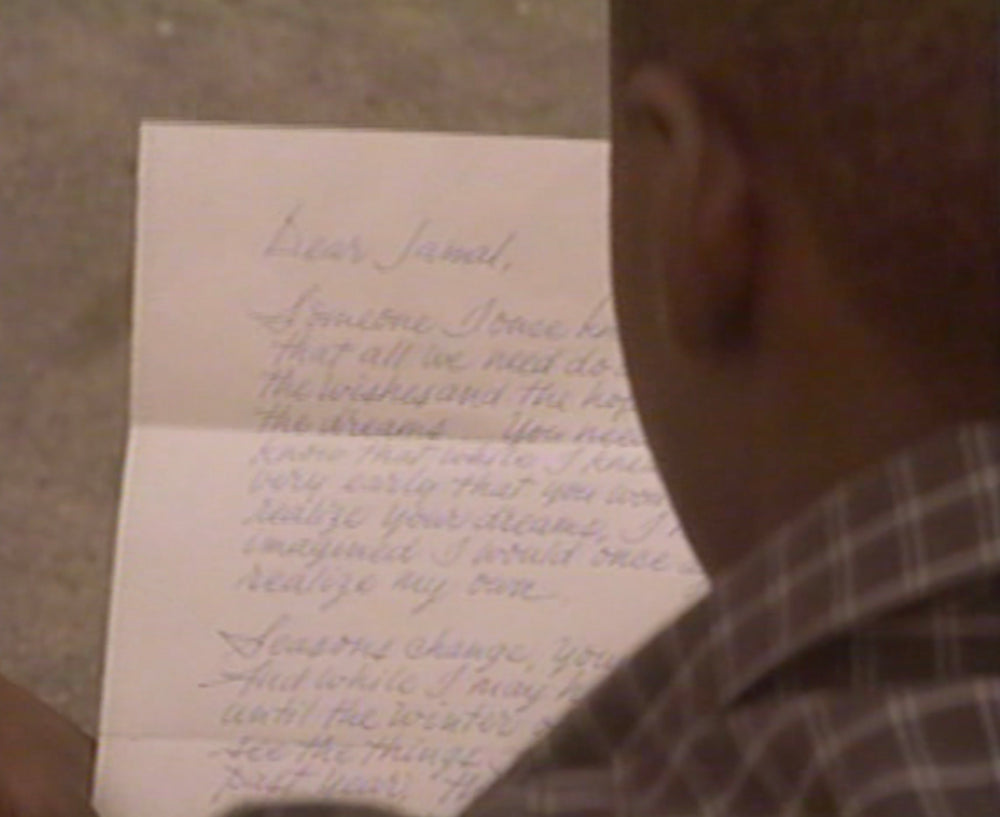 Dear Jamal,
Someone I once kn
that all we need do
the wishes and the hop
the dreams You need
know that while I knew
very early that you won
realize your dreams, I n
imagined I would once
realize my own.
Seasons change, You
And while I may h
until the winter
see the things
past year. Th